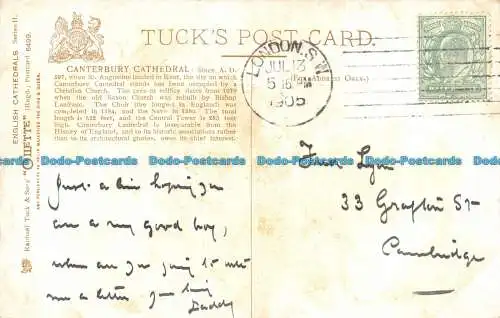 TUCK'S POST CARD.
CANTERBURY CATHEDRAL: Since A. D.
597, when St. Augustine landed in Kent, the site on which
Canterbury Cathedral stands has been occupied by a
Christian Church. The core of edifice dates from 1070
when the ruined Saxon Church was rebuilt by Bishop
Lanfranc. The Choir (the longest in England) was
completed in 1184, and the Nave in 1380. The total
length is 522 feet, and the Central Tower is 235 feet
high. Canterbury Cathedral is inseparable from the
History of England, and to its historic associations rather
than to its architectural graces, owes its chief interest.
(For Address Only.)
ENGLISH CATHEDRALS. Series II.
"OILETTE" (Regd.) Postcard 6499.
Raphael Tuck & Sons'
ART PUBLISHERS TO THEIR MAJESTIES THE KING & QUEEN.
LONDON. S.W.
JUL 13
5 15 PM
1905
Just a line hoping you
are a very good boy,
when are you going to write
me a letter your loving
Daddy
Lyon
33 Grafton St
Cambridge
Dodo-Postcards Dodo-Postcards Dodo-Postcards Dodo-Postcards
Dodo-Postcards Dodo-Postcards Dodo-Postcards Dodo-Postcards